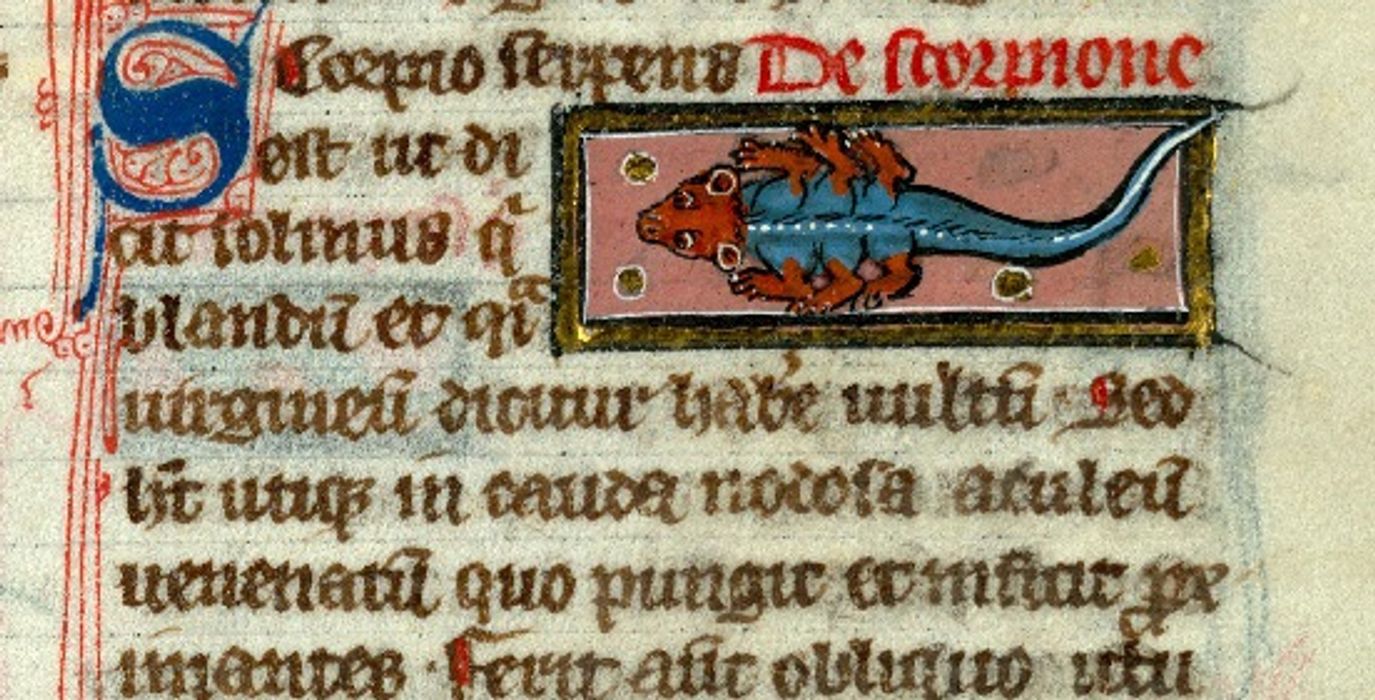 Scorpio serpens De scorpione
est ut di
cit solinus qͣ
blandū et qͣi
uirgineū dicitur hab'e uultū Sed
ht̄ utiqꝫ in cauda nodosa aculeū
uenenatū quo pungit et inficit ꝓx
imantes Ferit aūt obliquo ictu